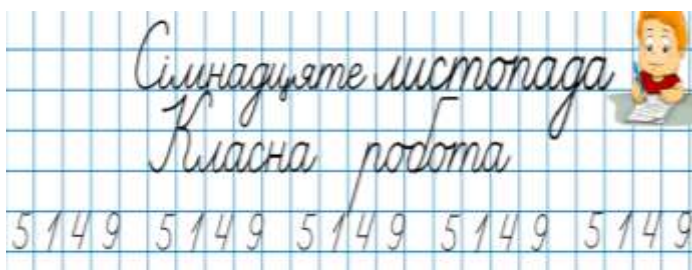 Сімнадцяте листопада
Класна робота
5149 5149 5149 5149 5149